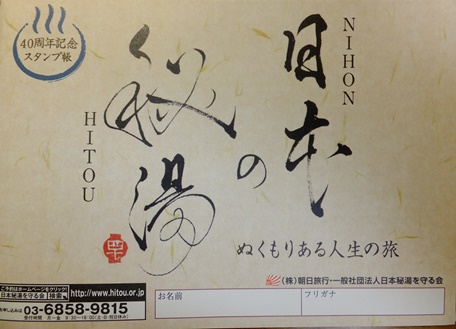 40周年記念
スタンプ帳
日本の秘湯
NIHON
HITOU
ぬくもりある人生の旅
(株)朝日旅行・一般社団法人日本秘湯を守る会
お名前
フリガナ
ご予約はホームページをクリック!
日本秘湯を守る会 検索
http://www.hitou.or.jp
03-6858-9815